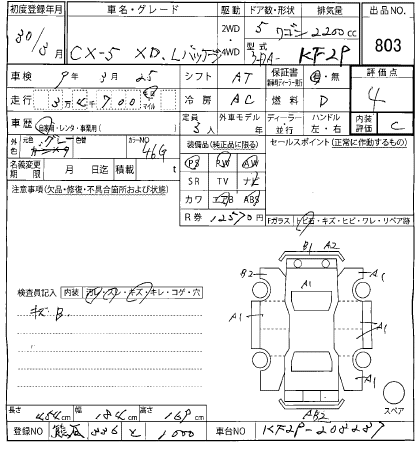 初度登録年月 車名・グレード 駆動 ドア数・形状 排気量 出品NO.
30/3月 CX-5 XD.Lパッケージ 2WD 4WD 5 ワゴン 2200cc 803
型式 3DA- KF2P
車検 9年3月25 シフト AT 保証書 有・無 評価点
走行 3万4千700 マイル 冷房 AC 燃料 D 4
車歴 自家用・レンタ・事業用( ) 定員 5人 外車モデル 年 ディーラー 並行 ハンドル 左・右 内装評価 C
外色 元色 グレー 色替 カラーNO 46G 装備品(純正品に限る) セールスポイント(正常に作動するもの)
名義変更期限 月 日 積替 積載 t
PS PW AW
SR TV ナビ
カワ エアB ABS
注意事項(欠品・修復・不具合箇所および状態) R券 12570円 Fガラス トビ石・キズ・ヒビ・ワレ・リペア跡
B1 A2
B2 A1
A1 A1
A1
A1
検査員記入 内装 汚レ・スレ・キズ・キレ・コゲ・穴
キズB
AB2
スペア
長さ 454cm 幅 184cm 高さ 169cm
登録NO 336 1000 車台NO KF2P-208287